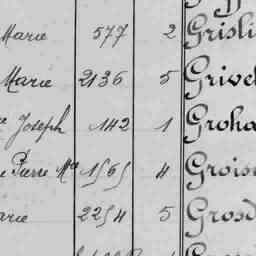 Marie 577 2 Grisli
Marie 2136 5 Grivel
Joseph 142 1 Groha
Pierre Mce 1565 4 Grois
arie 2254 5 Grosd